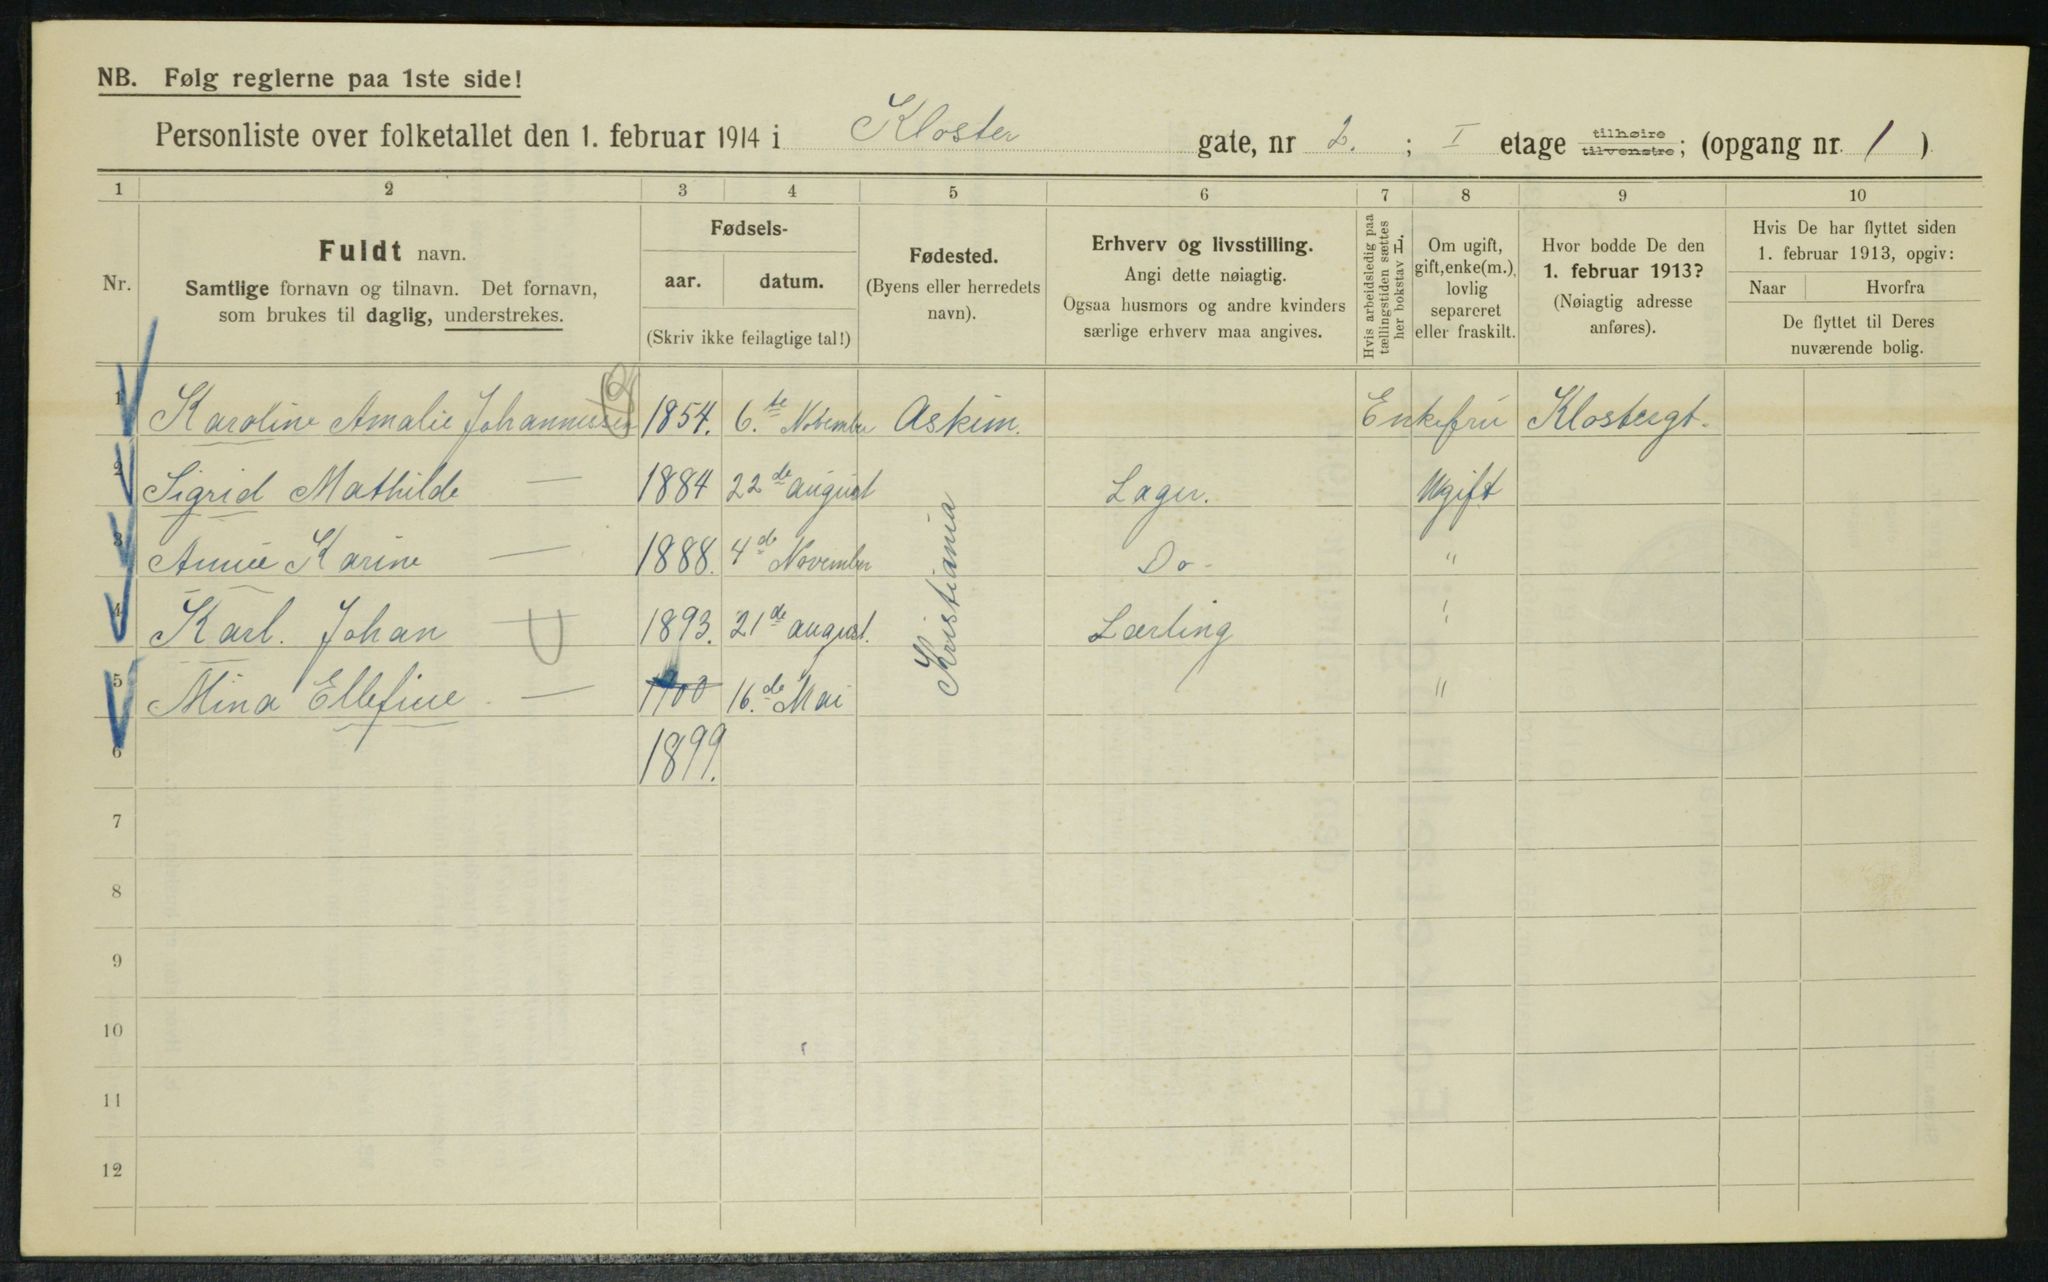 NB. Følg reglerne paa 1ste side!
Personliste over folketallet den 1. februar 1914 i Kloster gate, nr 2. ; I etage tilhøire tilvenstre; (opgang nr. 1 )
1 2 3 4 5 6 7 8 9 10
Nr.
Fuldt navn.
Samtlige fornavn og tilnavn. Det fornavn,
som brukes til daglig, understrekes.
Fødsels-
aar. datum.
(Skriv ikke feilagtige tal!)
Fødested.
(Byens eller herredets
navn).
Erhverv og livsstilling.
Angi dette nøiagtig.
Ogsaa husmors og andre kvinders
særlige erhverv maa angives.
Hvis arbeidsledig paa
tællingstiden sættes
her bokstav L.
Om ugift,
gift, enke(m.),
lovlig
separeret
eller fraskilt.
Hvor bodde De den
1. februar 1913?
(Nøiagtig adresse
anføres).
Hvis De har flyttet siden
1. februar 1913, opgiv:
Naar Hvorfra
De flyttet til Deres
nuværende bolig.
1 Karoline Amalie Johannessen 1854. 6.te November Askim. Enkefru Klostergt.
2 Sigrid Mathilde — 1884 22de august Lager. Ugift
3 Annie Karine — 1888. 4de November Do- "
4 Karl. Johan — 1893. 21de august. Lærling "
5 Mina Ellefine — 1900 16.de Mai "
Kristiania
6 1899.
7
8
9
10
11
12